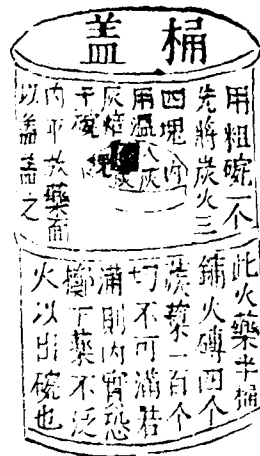 桶盖
用粗碗一个
先將炭火三
四塊内
用温火灰
灰焙
于碗
内平放藥面
以盖盖之
此火藥半桶
鋪火磚四个
蒺藜一百个
切不可滿若
滿則内實恐
擲下藥不泛
火以出碗也